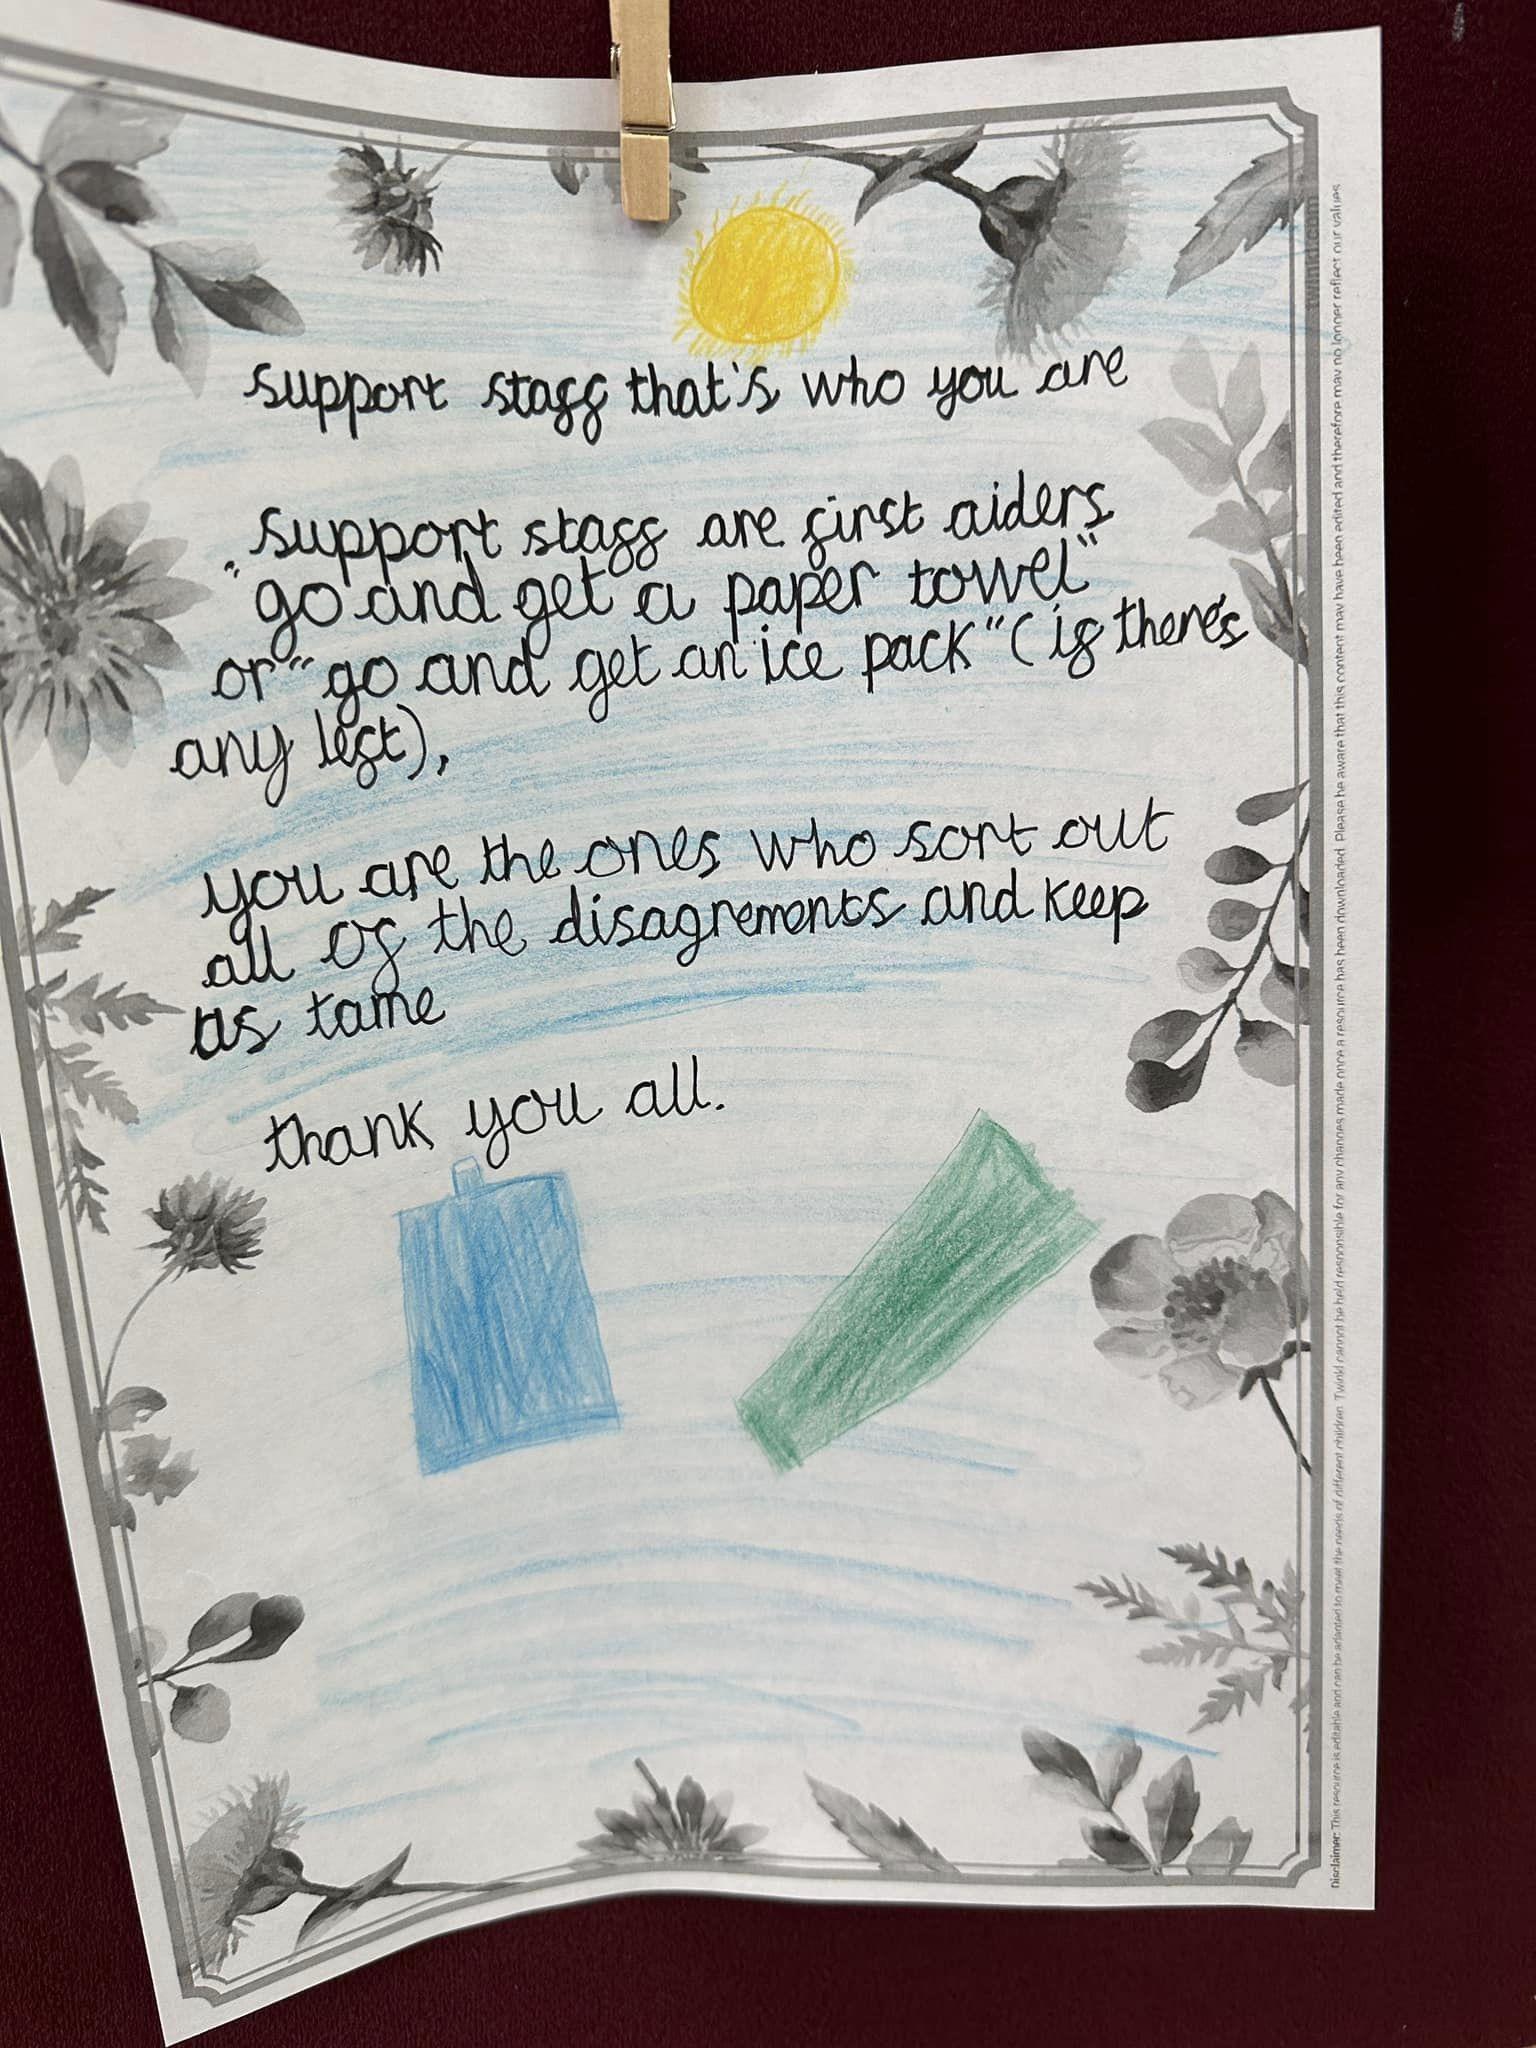 support staff that's who you are
"support staff are first aiders
"go and get a paper towel"
or "go and get an ice pack" (if there's
any left),
you are the ones who sort out
all of the disagrements and keep
us tame
thank you all.
twinkl.com
Disclaimer: This resource is editable and can be adapted to meet the needs of different children. Twinkl cannot be held responsible for any changes made once a resource has been downloaded. Please be aware that this content may have been edited and therefore may no longer reflect our values.